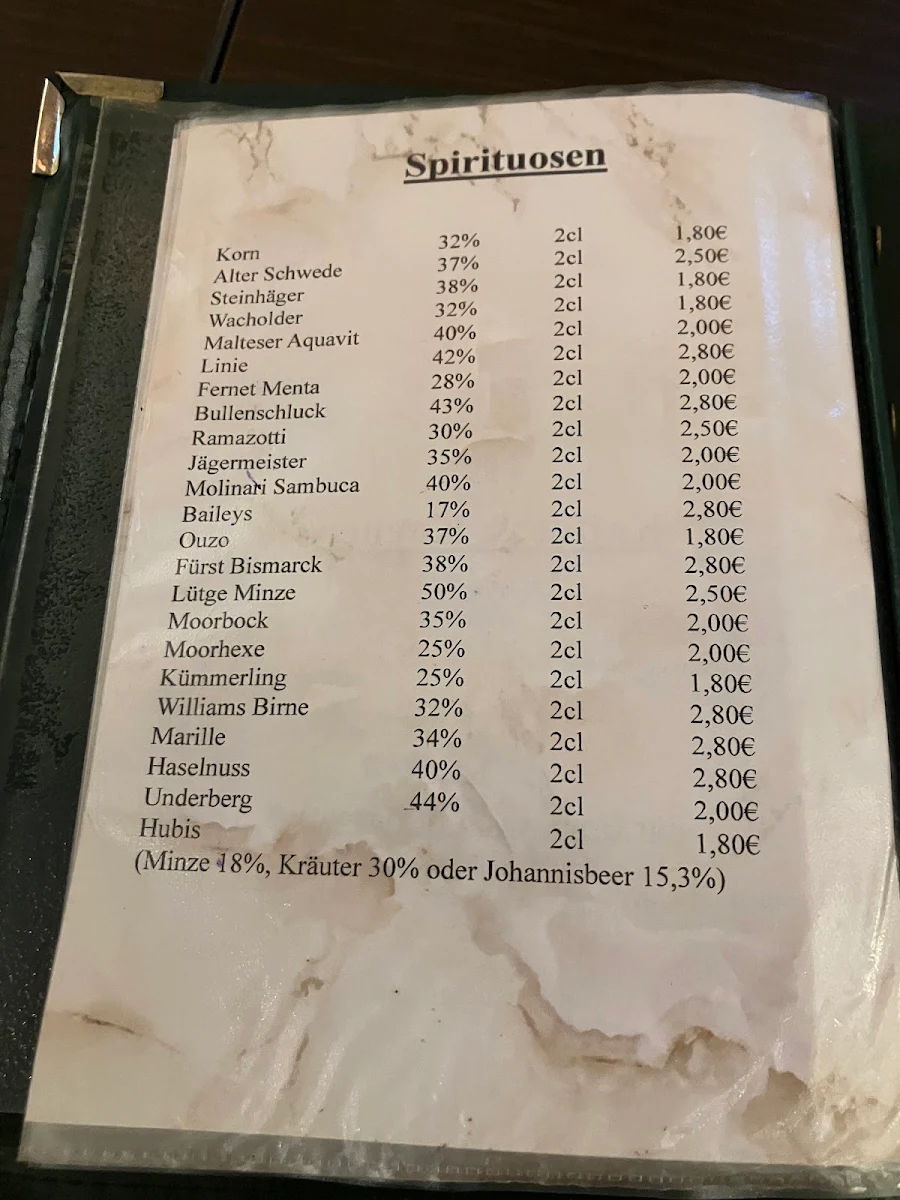 Spirituosen
Korn 32% 2cl 1,80€
Alter Schwede 37% 2cl 2,50€
Steinhäger 38% 2cl 1,80€
Wacholder 32% 2cl 1,80€
Malteser Aquavit 40% 2cl 2,00€
Linie 42% 2cl 2,80€
Fernet Menta 28% 2cl 2,00€
Bullenschluck 43% 2cl 2,80€
Ramazotti 30% 2cl 2,50€
Jägermeister 35% 2cl 2,00€
Molinari Sambuca 40% 2cl 2,00€
Baileys 17% 2cl 2,80€
Ouzo 37% 2cl 1,80€
Fürst Bismarck 38% 2cl 2,80€
Lütge Minze 50% 2cl 2,50€
Moorbock 35% 2cl 2,00€
Moorhexe 25% 2cl 2,00€
Kümmerling 25% 2cl 1,80€
Williams Birne 32% 2cl 2,80€
Marille 34% 2cl 2,80€
Haselnuss 40% 2cl 2,80€
Underberg 44% 2cl 2,00€
Hubis 2cl 1,80€
(Minze 18%, Kräuter 30% oder Johannisbeer 15,3%)